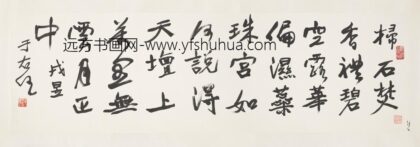 掃石焚
香禮碧
空露華
偏濕蘂
珠宮如
何說得
天壇上
萬里無
雲月正
中 戎昱
于右任
远方书画网-www.yfshuhua.com